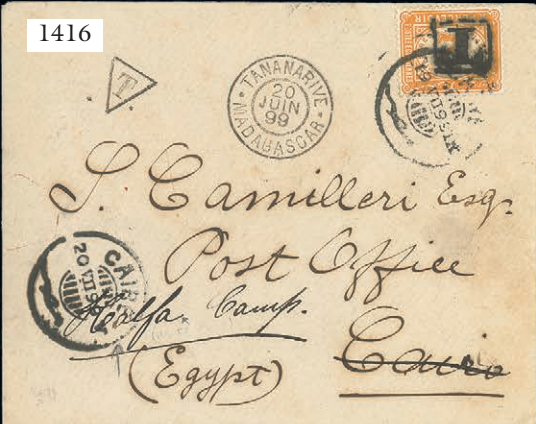 1416
T
TANANARIVE
20
JUIN
99
MADAGASCAR
T
S. Camilleri Esq.
Post Office
Halfa Camp.
Cairo
(Egypt)
CAIR
20 VII 9